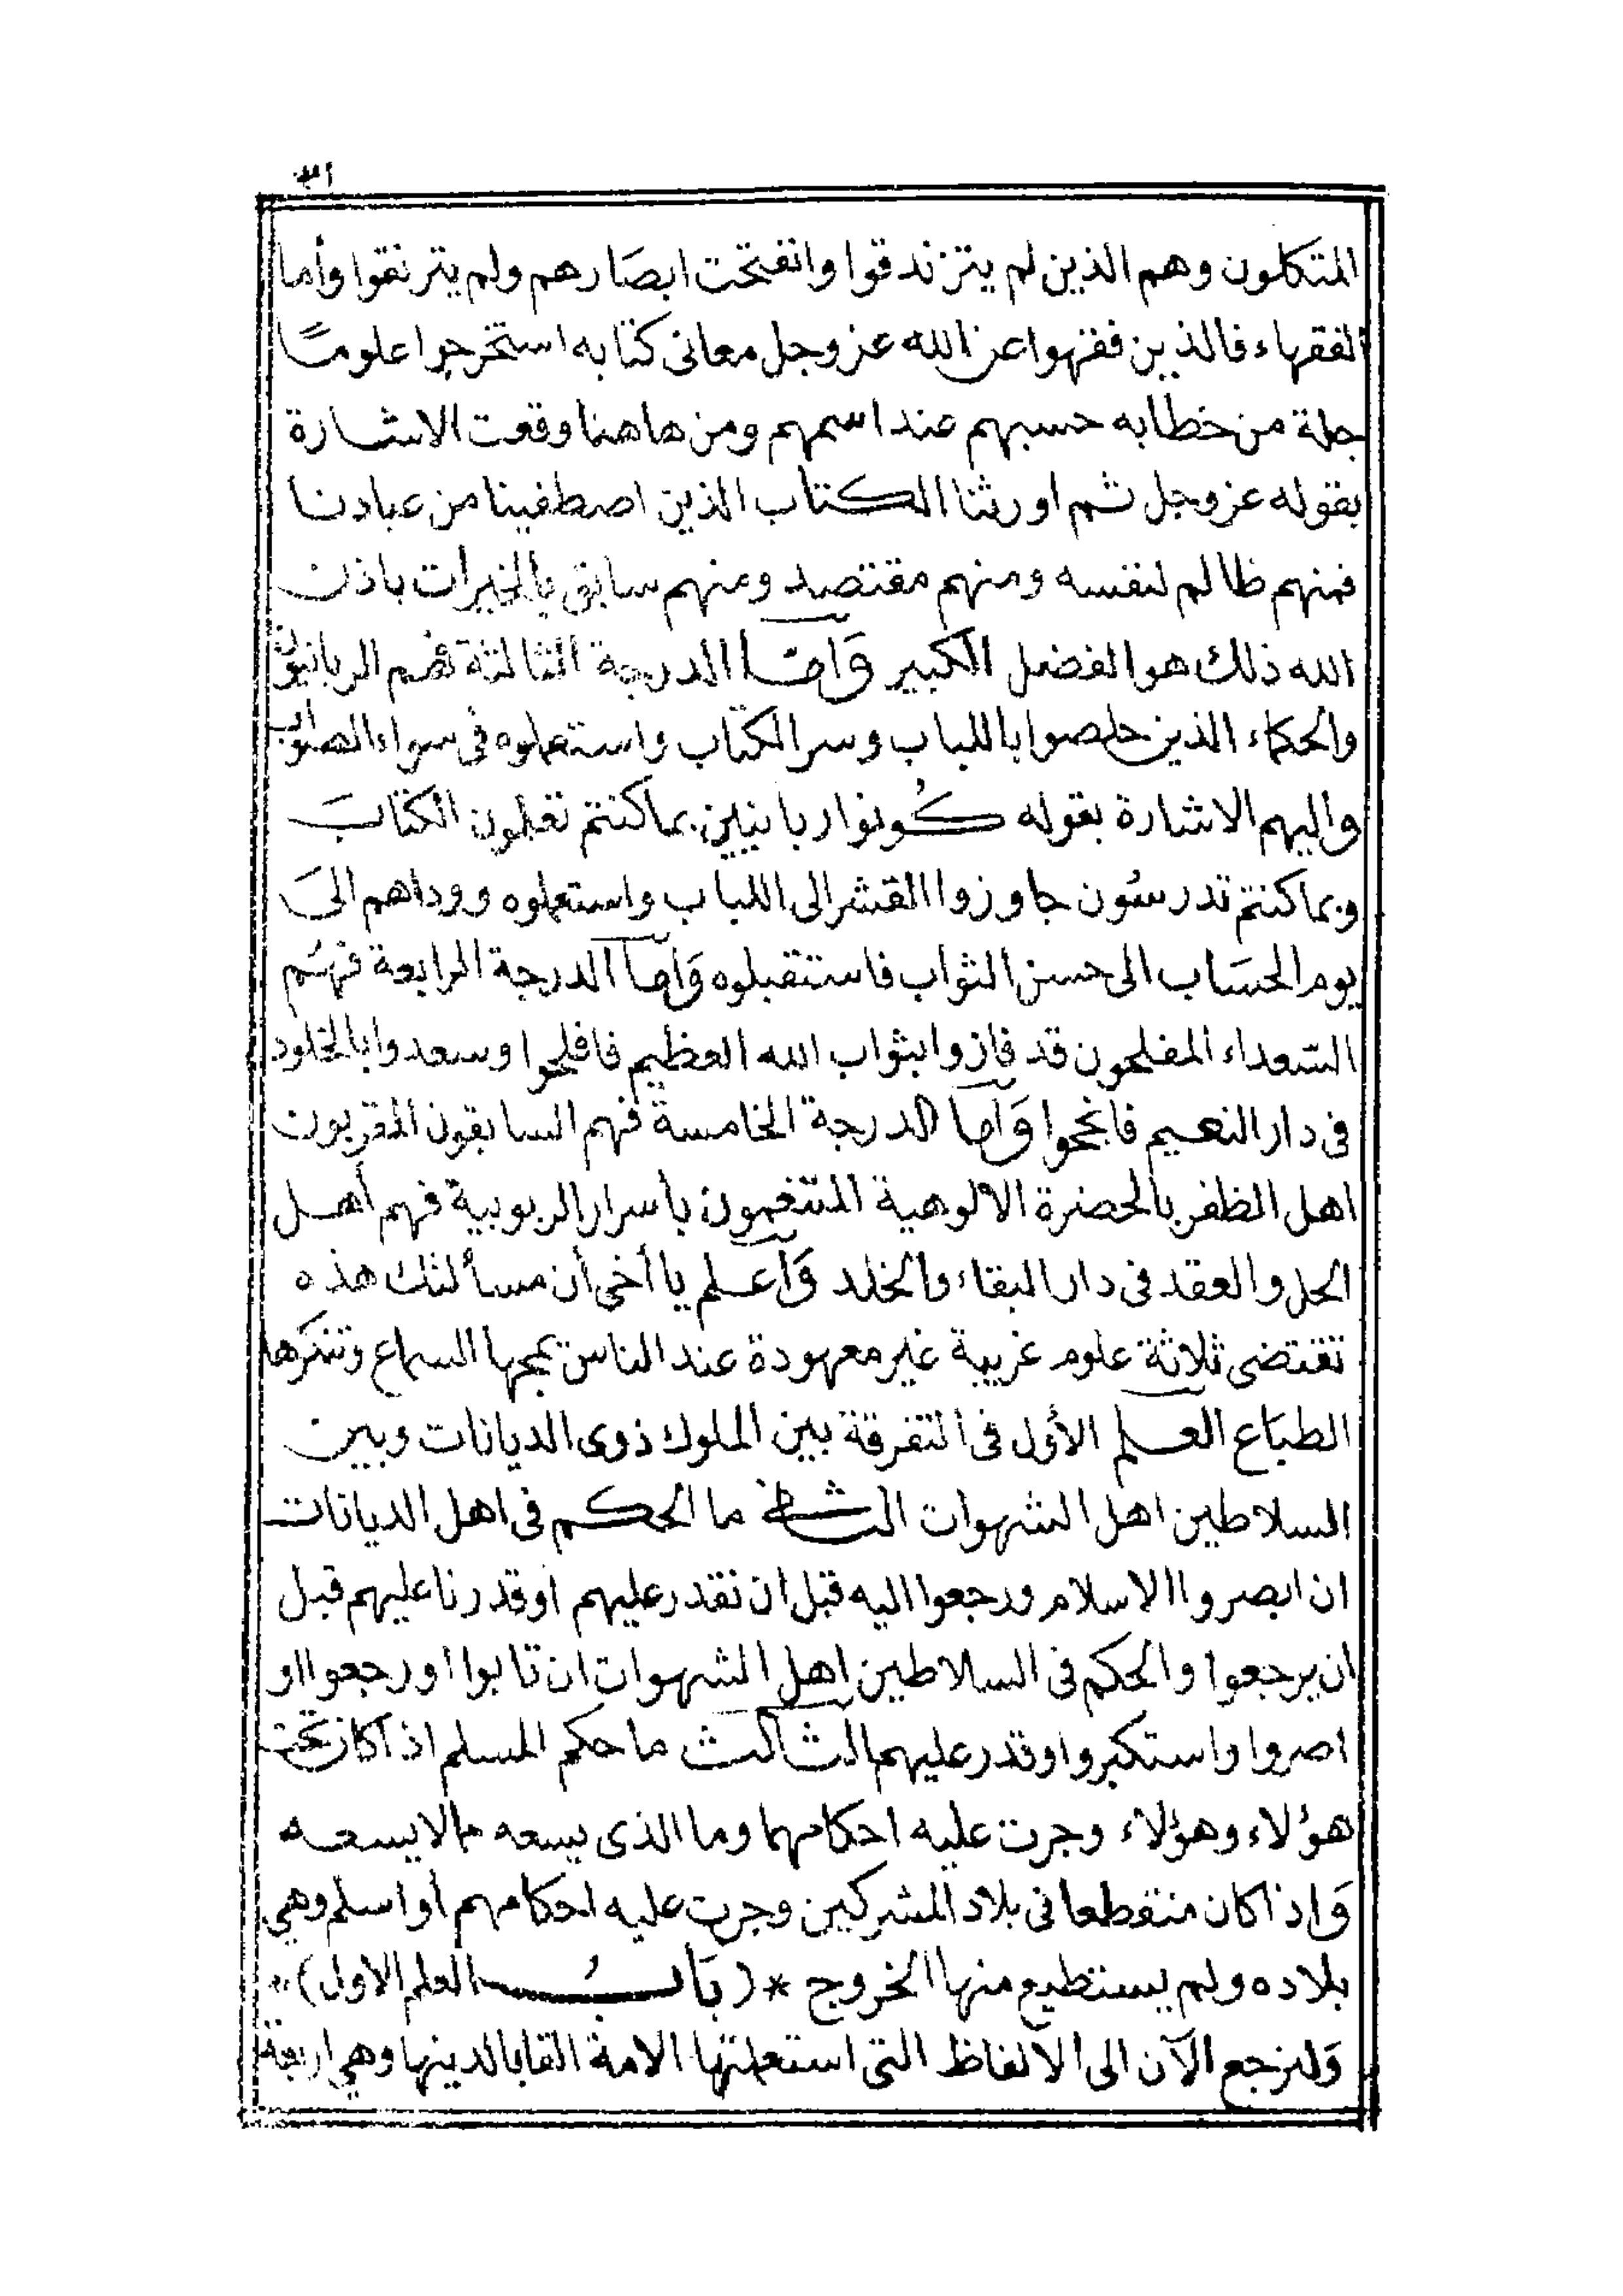 ٣١
المتكلمون وهم الذين لم يتزندقوا وانفتحت ابصارهم ولم يترنقوا وأما
الفقهاء فالذين فقهوا عن الله عز وجل معانى كتابه استخرجوا علوما
جملة من خطابه حسبهم عند اسمهم ومن هاهنا وقعت الاشارة
بقوله عز وجل ثم اورثنا الكتاب الذين اصطفينا من عبادنا
فمنهم ظالم لنفسه ومنهم مقتصد ومنهم سابق بالخيرات باذن
الله ذلك هو الفضل الكبير وَامّا الدرجة الثالثة فهم الربانيون
والحكماء الذين خلصوا باللباب وسر الكتاب واستعملوه فى سواء الصواب
واليهم الاشارة بقوله كُونوا ربانيين بما كنتم تعلمون الكتابَ
وبما كنتم تدرسُون جاوزوا القشر الى اللباب واستعملوه ووداهم الىَ
يوم الحسَاب الى حسن الثواب فاستقبلوه وَاما الدرجة الرابعة فهُم
السّعداء المفلحون قد فازوا بثواب الله العظيم فافلحوا وسعدوا بالخلود
فى دار النعيم فانجحوا وَاما الدرجة الخامسة فهم السابقون المقربون
اهل الظفر بالحضرة الالوهية المتنغمون باسرار الربوبية فهم أهل
الحل والعقد فى دار البقاء والخلد وَاعلم يا أخى أن مسألتك هذه
تقتضى ثلاثة علوم غريبة غير معهودة عند الناس تمجها السماع وتنكرها
الطبَاع العلم الأول فى التفرقة بين الملوك ذوى الديانات وبين
السلاطين اهل الشهوات الثانى ما الحكم فى اهل الديانات
ان ابصروا الاسلام ورجعوا اليه قبل ان نقدر عليهم او قدرنا عليهم قبل
ان يرجعوا والحكم فى السلاطين اهل الشهوات ان تابوا او رجعوا او
اصروا واستكبروا وقدر عليهم الثالث ما حكم المسلم اذا كان تحت
هؤلاء وهؤلاء وجرت عليه احكامهما وما الذى يسعه مما لا يسعه
وَاذا كان منقطعا فى بلاد المشركين وجرت عليه احكامهم أو اسلم وهى
بلاده ولم يستطيع منها الخروج * (بَابُ العلم الاول) *
وَلنرجع الآن الى الالفاظ التى استعملتها الامة القابا لدينها وهى اربعة